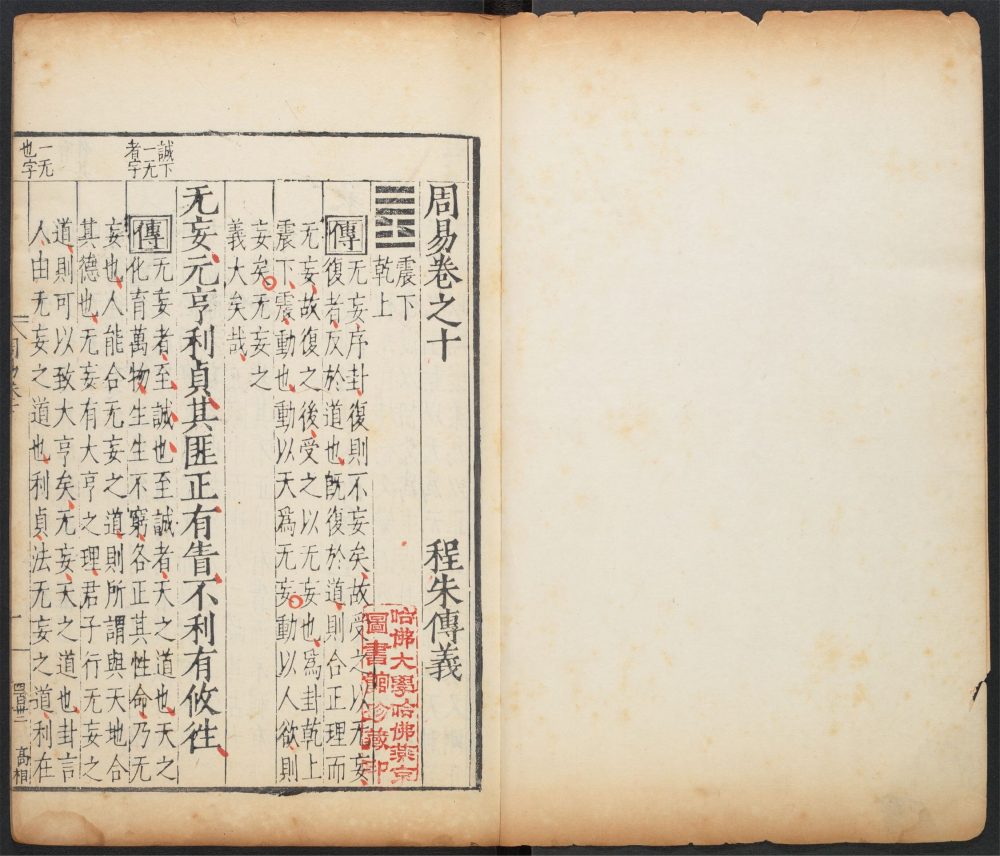 周易卷之十
程朱傳義
震下
乾上
傳无妄序卦復則不妄矣故受之以无妄
復者反於道也既復於道則合正理而
无妄故復之後受之以无妄也爲卦乾上
震下震動也動以天爲无妄動以人欲則
妄矣无妄之
義大矣哉
无妄元亨利貞其匪正有眚不利有攸往
傳无妄者至誠也至誠者天之道也天之
化育萬物生生不窮各正其性命乃无
妄也人能合无妄之道則所謂與天地合
其德也无妄有大亨之理君子行无妄之
道則可以致大亨矣无妄天之道也卦言
人由无妄之道也利貞法无妄之道利在
誠下
一无
者字
一无
也字
高相
哈佛大學哈佛燕京
圖書館珍藏印